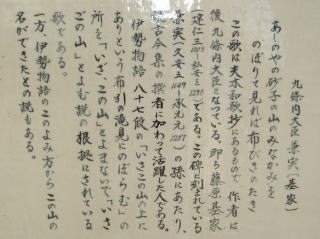 九條内大臣 兼実〔基家〕
あしのやの砂子の山のみなかみを
のぼりて見れば布びきのたき
この歌は夫木和歌抄にあるもので 作者は
後九條内大臣となっている。即ち藤原基家
(建仁三1203 弘安三1280)である。この碑に刻まれている
兼実(久安五1149-承元元1207)の孫にあたり、
続古今集の撰者に加わって活躍した人である。
伊勢物語 八十七段の「いさこの山の上に
ありという布引の滝見にのぼらむ」の
所を「いさご山」とよまないで「いさ
ごの山」とよむ説の根拠にされている
歌である。
一方、伊勢物語のこのよみ方からこの山の
名ができたとの説もある。